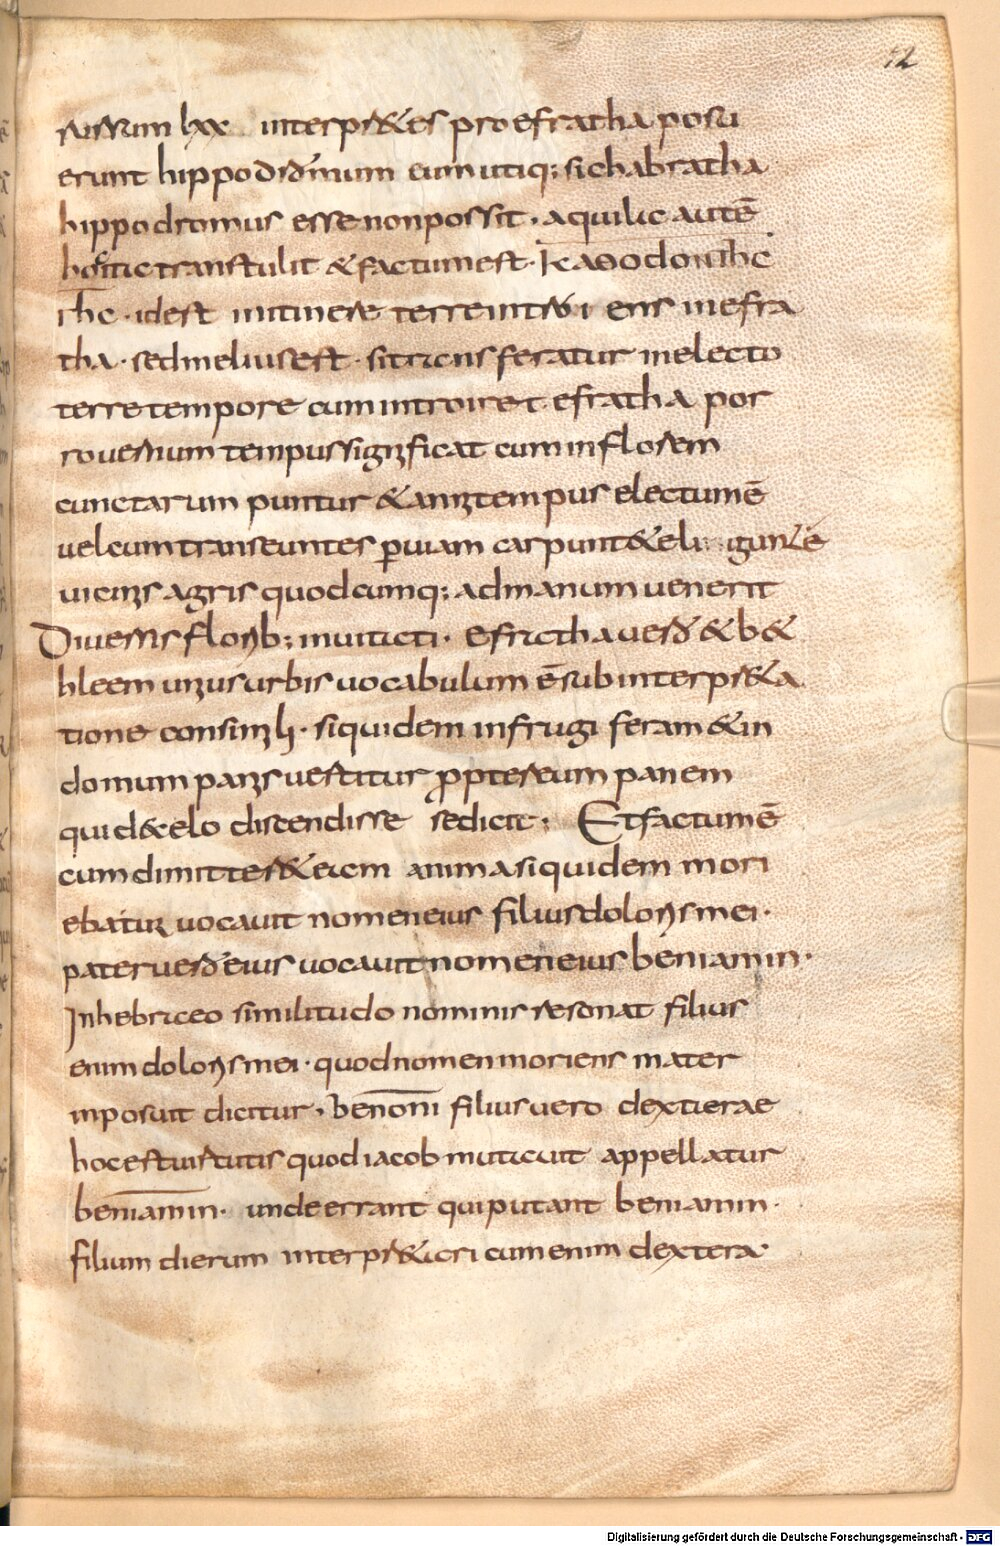 72
rursum lxx interpr&es pro efratha posu
erunt hippodromum cum utiq; si chabratha
hippodromus esse non possit. aquila autē
hoc ita transtulit & factum est. καθοδον της
της. id est in itinere terre introi ens in efra
tha. sed melius est. si transferatur in electo
terre tempore cum introiret efratha por
ro uernum tempus significat cum in florem
cunctarum puntur & anni tempus electum ē
uel cum transeuntes p uiam carpunt & eli igunt ē
uicinis agris quodcumq; ad manum uenerit
Diuersis florib; inuitati. efratha uero & b&
hleem unius urbis uocabulum ē sub interpr&a
tione consimili. siquidem in frugi feram & in
domum panis uertitur propter eum panem
qui de celo discendisse se dicit; Et factum ē
cum dimitter& eam anima siquidem mori
ebatur uocauit nomen eius filius doloris mei.
pater uero eius uocauit nomen eius beniamin.
In hebraeo similitudo nominis resonat filius
enim doloris mei. quod nomen moriens mater
inposuit dicitur, benoni filius uero dexterae
hoc est uirtutis quod iacob mutauit appellatur
beniamin. unde errant qui putant beniamin.
filium dierum interpr&ari cum enim dextera
Digitalisierung gefördert durch die Deutsche Forschungsgemeinschaft - DFG